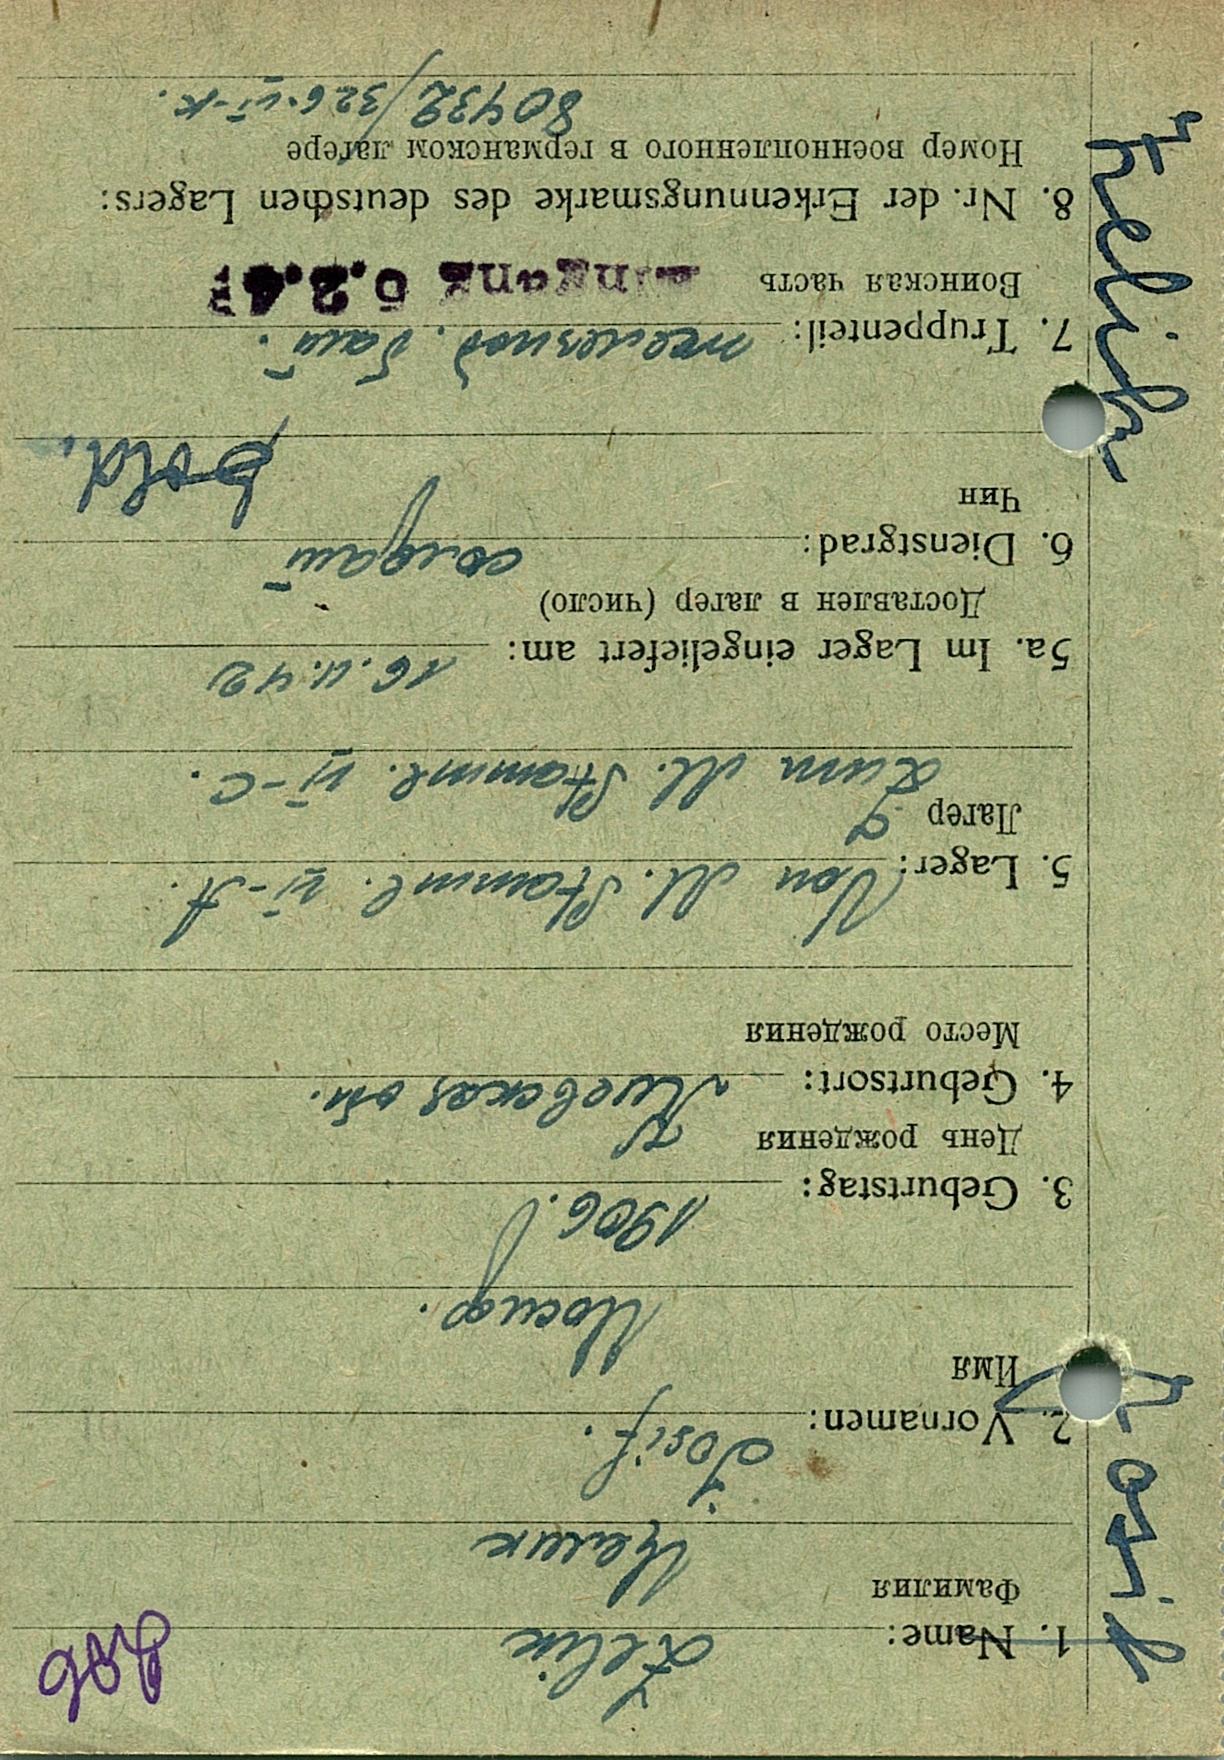 206
1. Name: Zelik
Фамилия Целик
2. Vornamen: Josif.
Имя Иосиф.
3. Geburtstag: 1906.
День рождения
4. Geburtsort: Киевская об.
Место рождения
5. Lager: Von M. Stamml. VI-A.
Лагер Zum M. Stamml. VI-C.
5a. Im Lager eingeliefert am: 16.11.42
Доставлен в лагер (число)
6. Dienstgrad: солдат
Чин Sold.
7. Truppenteil: железнод. бат.
Воинская часть Eingang 6.2.43
8. Nr. der Erkennungsmarke des deutschen Lagers:
Номер военнопленного в германском лагере
80432/326 VI-K.
Zhelik
Josif